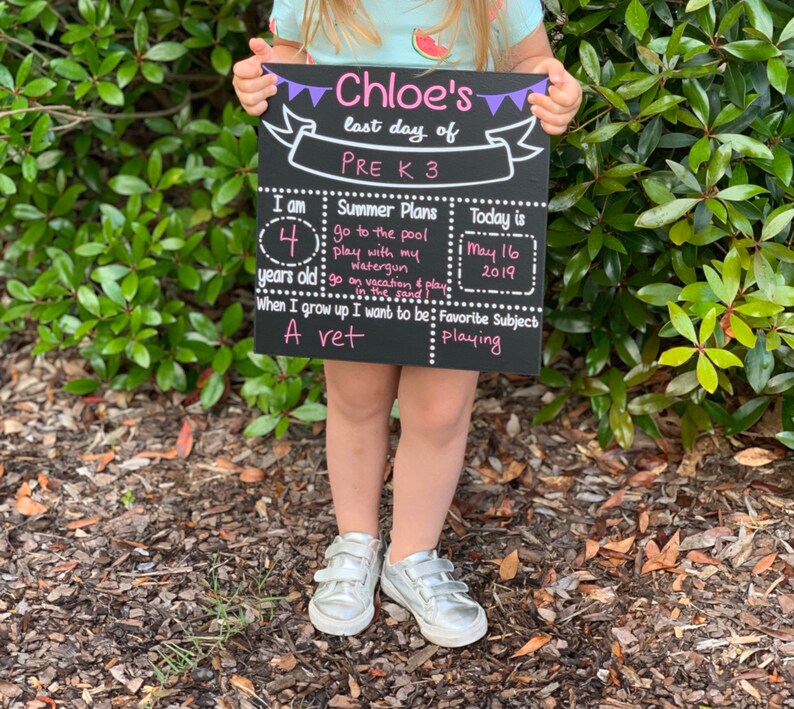 Chloe's
last day of
PRE K 3
I am
4
years old
Summer Plans
go to the pool
play with my
watergun
go on vacation & play
in the sand!
Today is
May 16
2019
When I grow up I want to be
A vet
Favorite Subject
playing